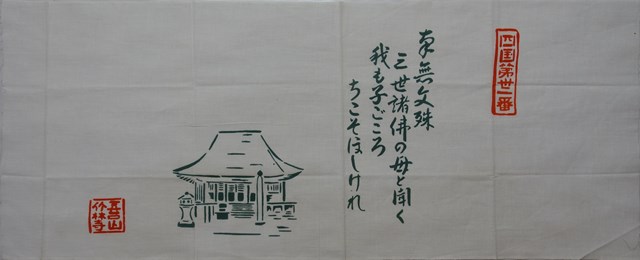 四国第丗一番
南無文殊
三世諸佛の母と聞く
我も子ごころ
ちこそほしけれ
五台山
竹林寺